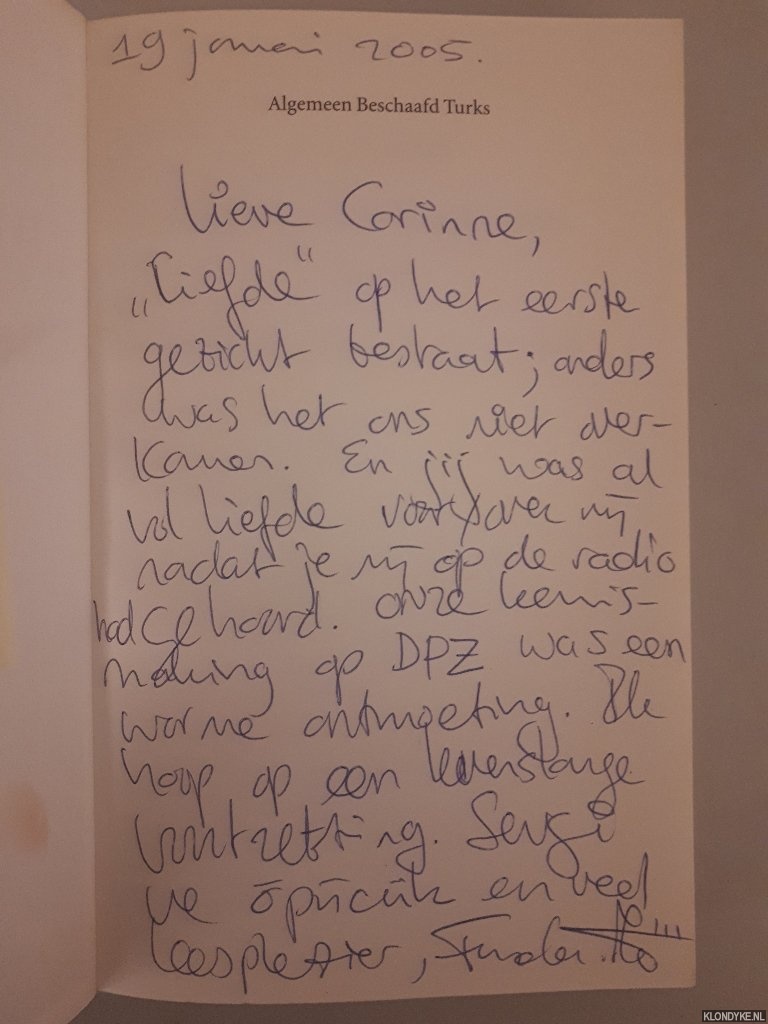 19 januari 2005.
Algemeen Beschaafd Turks
Lieve Corinne,
„Liefde“ op het eerste
gezicht bestaat; anders
was het ons niet over-
komen. En jij was al
vol liefde voor/over mij
nadat je mij op de radio
had gehoord. Onze kennis-
making op DPZ was een
warme ontmoeting. Ik
hoop op een levenslange
voortzetting. Sevgi
ve öpücük en veel
leesplezier, Funda
KLONDYKE.NL